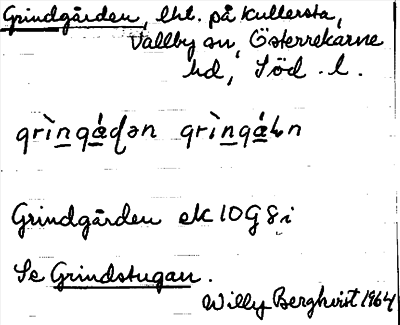 Grindgården, lht. på Kullersta,
Vallby sn, Österrekarne
hd, Söd. l.
Grindgården ek 10G8i
Se Grindstugan.
Willy Bergkvist 1964